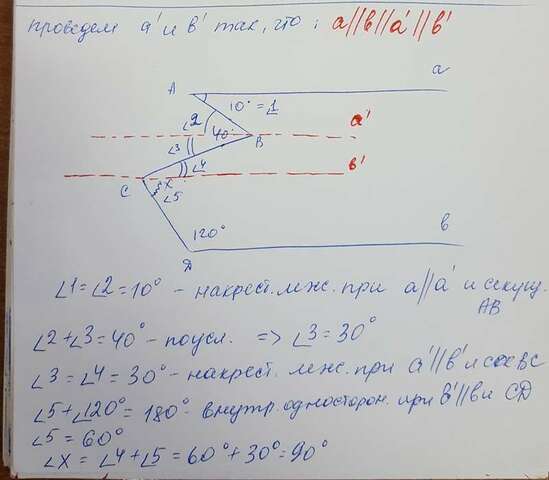 проведем a' и b' так, что: a||b||a'||b'
A
a
10° = ∠1
∠2
a'
40°
∠3
B
∠4
b'
C
x
∠5
120°
b
D
∠1 = ∠2 = 10° - накрест. леж. при a||a' и секущ. AB
∠2 + ∠3 = 40° - по усл. => ∠3 = 30°
∠3 = ∠4 = 30° - накрест. леж. при a'||b' и сек BC
∠5 + ∠120° = 180° - внутр. односторон. при b'||b и CD
∠5 = 60°
∠x = ∠4 + ∠5 = 60° + 30° = 90°